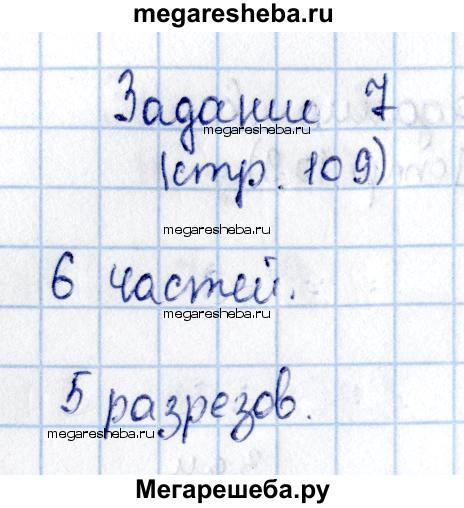 megaresheba.ru
Задание 7
megaresheba.ru
(стр. 109)
megaresheba.ru
6 частей.
megaresheba.ru
5 разрезов.
megaresheba.ru
Мегарешеба.ру